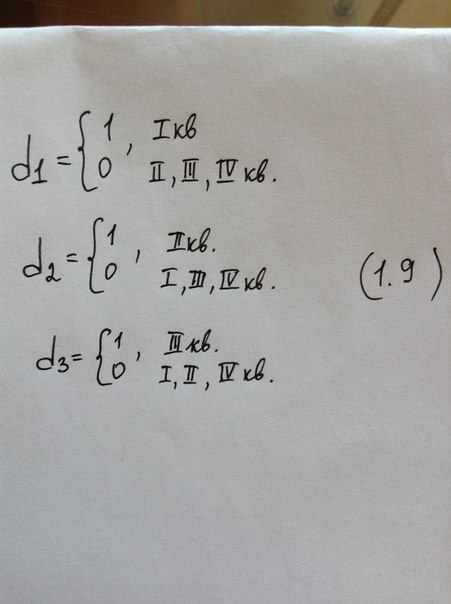 d1 = { 1, I кв
0 II, III, IV кв.
d2 = { 1, II кв.
0 I, III, IV кв.
(1.9)
d3 = { 1, III кв.
0 I, II, IV кв.